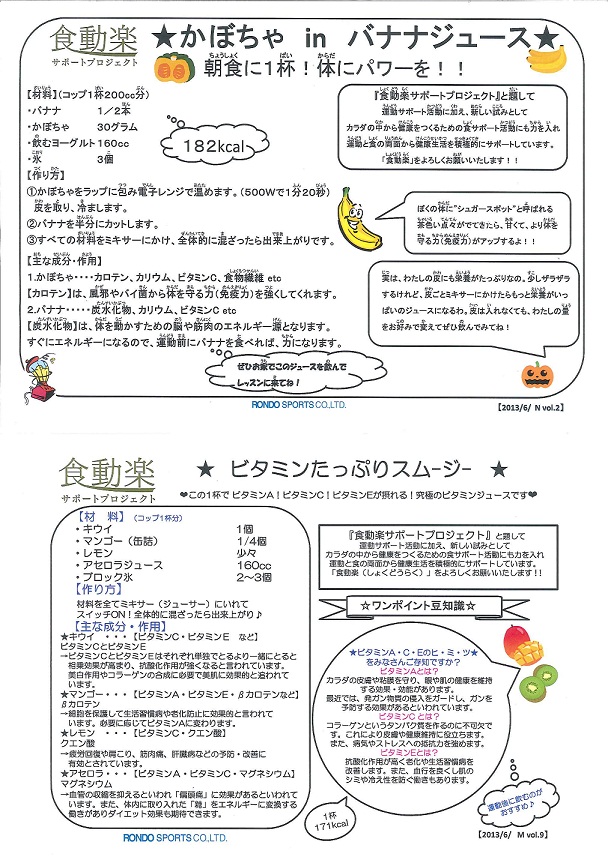 食動楽
サポートプロジェクト
★かぼちゃ in バナナジュース★
朝食に1杯！体にパワーを！！
【材料】(コップ1杯200cc分)
・バナナ 1／2本
・かぼちゃ 30グラム
・飲むヨーグルト 160cc
・氷 3個
182kcal
『食動楽サポートプロジェクト』と題して
運動サポート活動に加え、新しい試みとして
カラダの中から健康をつくるための食サポート活動にも力を入れ
運動と食の両面から健康生活を積極的にサポートしています。
「食動楽」をよろしくお願いいたします！！
【作り方】
①かぼちゃをラップに包み電子レンジで温めます。(500Wで1分20秒)
皮を取り、冷まします。
②バナナを半分にカットします。
③すべての材料をミキサーにかけ、全体的に混ざったら出来上がりです。
ぼくの体に"シュガースポット"と呼ばれる
茶色い点々がでてきたら、甘くて、より体を
守る力(免疫力)がアップするよ！！
【主な成分・作用】
1.かぼちゃ････カロテン、カリウム、ビタミンC、食物繊維 etc
【カロテン】は、風邪やバイ菌から体を守る力(免疫力)を強くしてくれます。
2.バナナ･････炭水化物、カリウム、ビタミンC etc
【炭水化物】は、体を動かすための脳や筋肉のエネルギー源となります。
すぐにエネルギーになるので、運動前にバナナを食べれば、力になります。
実は、わたしの皮にも栄養がたっぷりなの。少しザラザラ
するけれど、皮ごとミキサーにかけたらもっと栄養がいっ
ぱいのジュースになるわ。皮は入れなくても、わたしの量
をお好みで変えてぜひ飲んでみてね！
ぜひお家でこのジュースを飲んで
レッスンに来てね！
RONDO SPORTS CO.,LTD.
【2013/6/ N vol.2】
食動楽
サポートプロジェクト
★ ビタミンたっぷりスムージー ★
❤この1杯で ビタミンA！ビタミンC！ビタミンEが摂れる！究極のビタミンジュースです❤
【材 料】(コップ1杯分)
・キウイ 1個
・マンゴー（缶詰） 1/4個
・レモン 少々
・アセロラジュース 160cc
・ブロック氷 2～3個
【作り方】
材料を全てミキサー（ジューサー）にいれて
スイッチON！全体的に混ざったら出来上がり♪
【主な成分・作用】
★キウイ ・・・【ビタミンC・ビタミンE など】
ビタミンCとビタミンE
→ビタミンCとビタミンEはそれぞれ単独でとるより一緒にとると
相乗効果が高まり、抗酸化作用が強くなると言われています。
美白作用やコラーゲンの合成に必要で美肌に効果的と追われて
います。
★マンゴー・・・【ビタミンA・ビタミンE・βカロテンなど】
βカロテン
→細胞を保護して生活習慣病や老化防止に効果的と言われて
います。必要に応じてビタミンAに変わります。
★レモン ・・・【ビタミンC・クエン酸】
クエン酸
→疲労回復や肩こり、筋肉痛、肝臓病などの予防・改善に
有効とされています。
★アセロラ・・・【ビタミンA・ビタミンC・マグネシウム】
マグネシウム
→血管の収縮を抑えるといわれ「偏頭痛」に効果があるといわれて
います。また、体内に取り入れた「糖」をエネルギーに変換する
働きがありダイエット効果も期待できます。
『食動楽サポートプロジェクト』と題して
運動サポート活動に加え、新しい試みとして
カラダの中から健康をつくるための食サポート活動にも力を入れ
運動と食の両面から健康生活を積極的にサポートしています。
「食動楽（しょくどうらく）」をよろしくお願いいたします！！
☆ワンポイント豆知識☆
★ビタミンA・C・Eのヒ・ミ・ツ★
をみなさんご存知ですか？
ビタミンAとは？
カラダの皮膚や粘膜を守り、眼や肌の健康を維持
する効果・効能があります。
最近では、発ガン物質の侵入をガードし、ガンを
予防する効果があるといわれています。
ビタミンCとは？
コラーゲンというタンパク質を作るのに不可欠で
す。これにより皮膚や健康維持に役立ちます。
また、病気やストレスへの抵抗力を強めます。
ビタミンEとは？
抗酸化作用が高く老化や生活習慣病を
改善します。また、血行を良くし肌の
シミや冷え性を防ぐ働きもあります。
運動後に飲むのが
おすすめ♪
1杯
171kcal
RONDO SPORTS CO.,LTD.
【2013/6/ M vol.9】